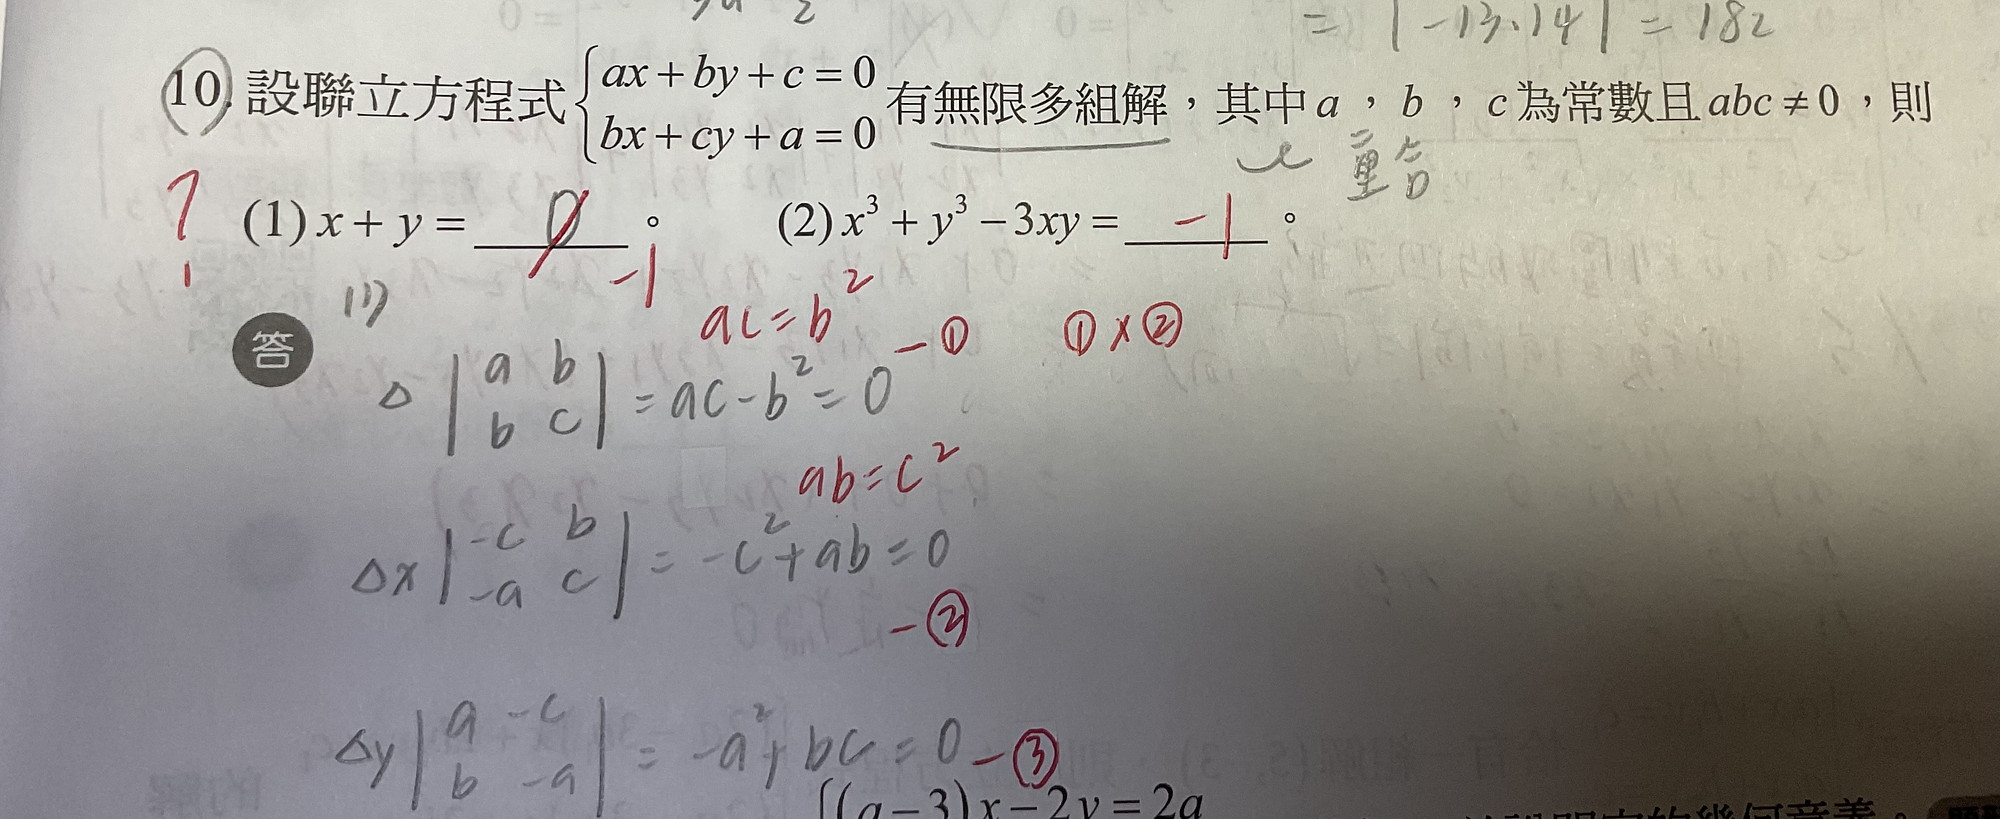 = |-13·14| = 182
10. 設聯立方程式 { ax + by + c = 0
bx + cy + a = 0 有無限多組解，其中 a ， b ， c 為常數且 abc ≠ 0 ，則
重合
? (1) x + y = 0 。 (2) x³ + y³ − 3xy = -1 。
-1
(1)
ac = b² -① ① × ②
答
△ | a b
b c | = ac - b² = 0
ab = c²
△x | -c b
-a c | = -c² + ab = 0
-②
△y | a -c
b -a | = -a² + bc = 0 -③
(a − 3)x − 2y = 2a